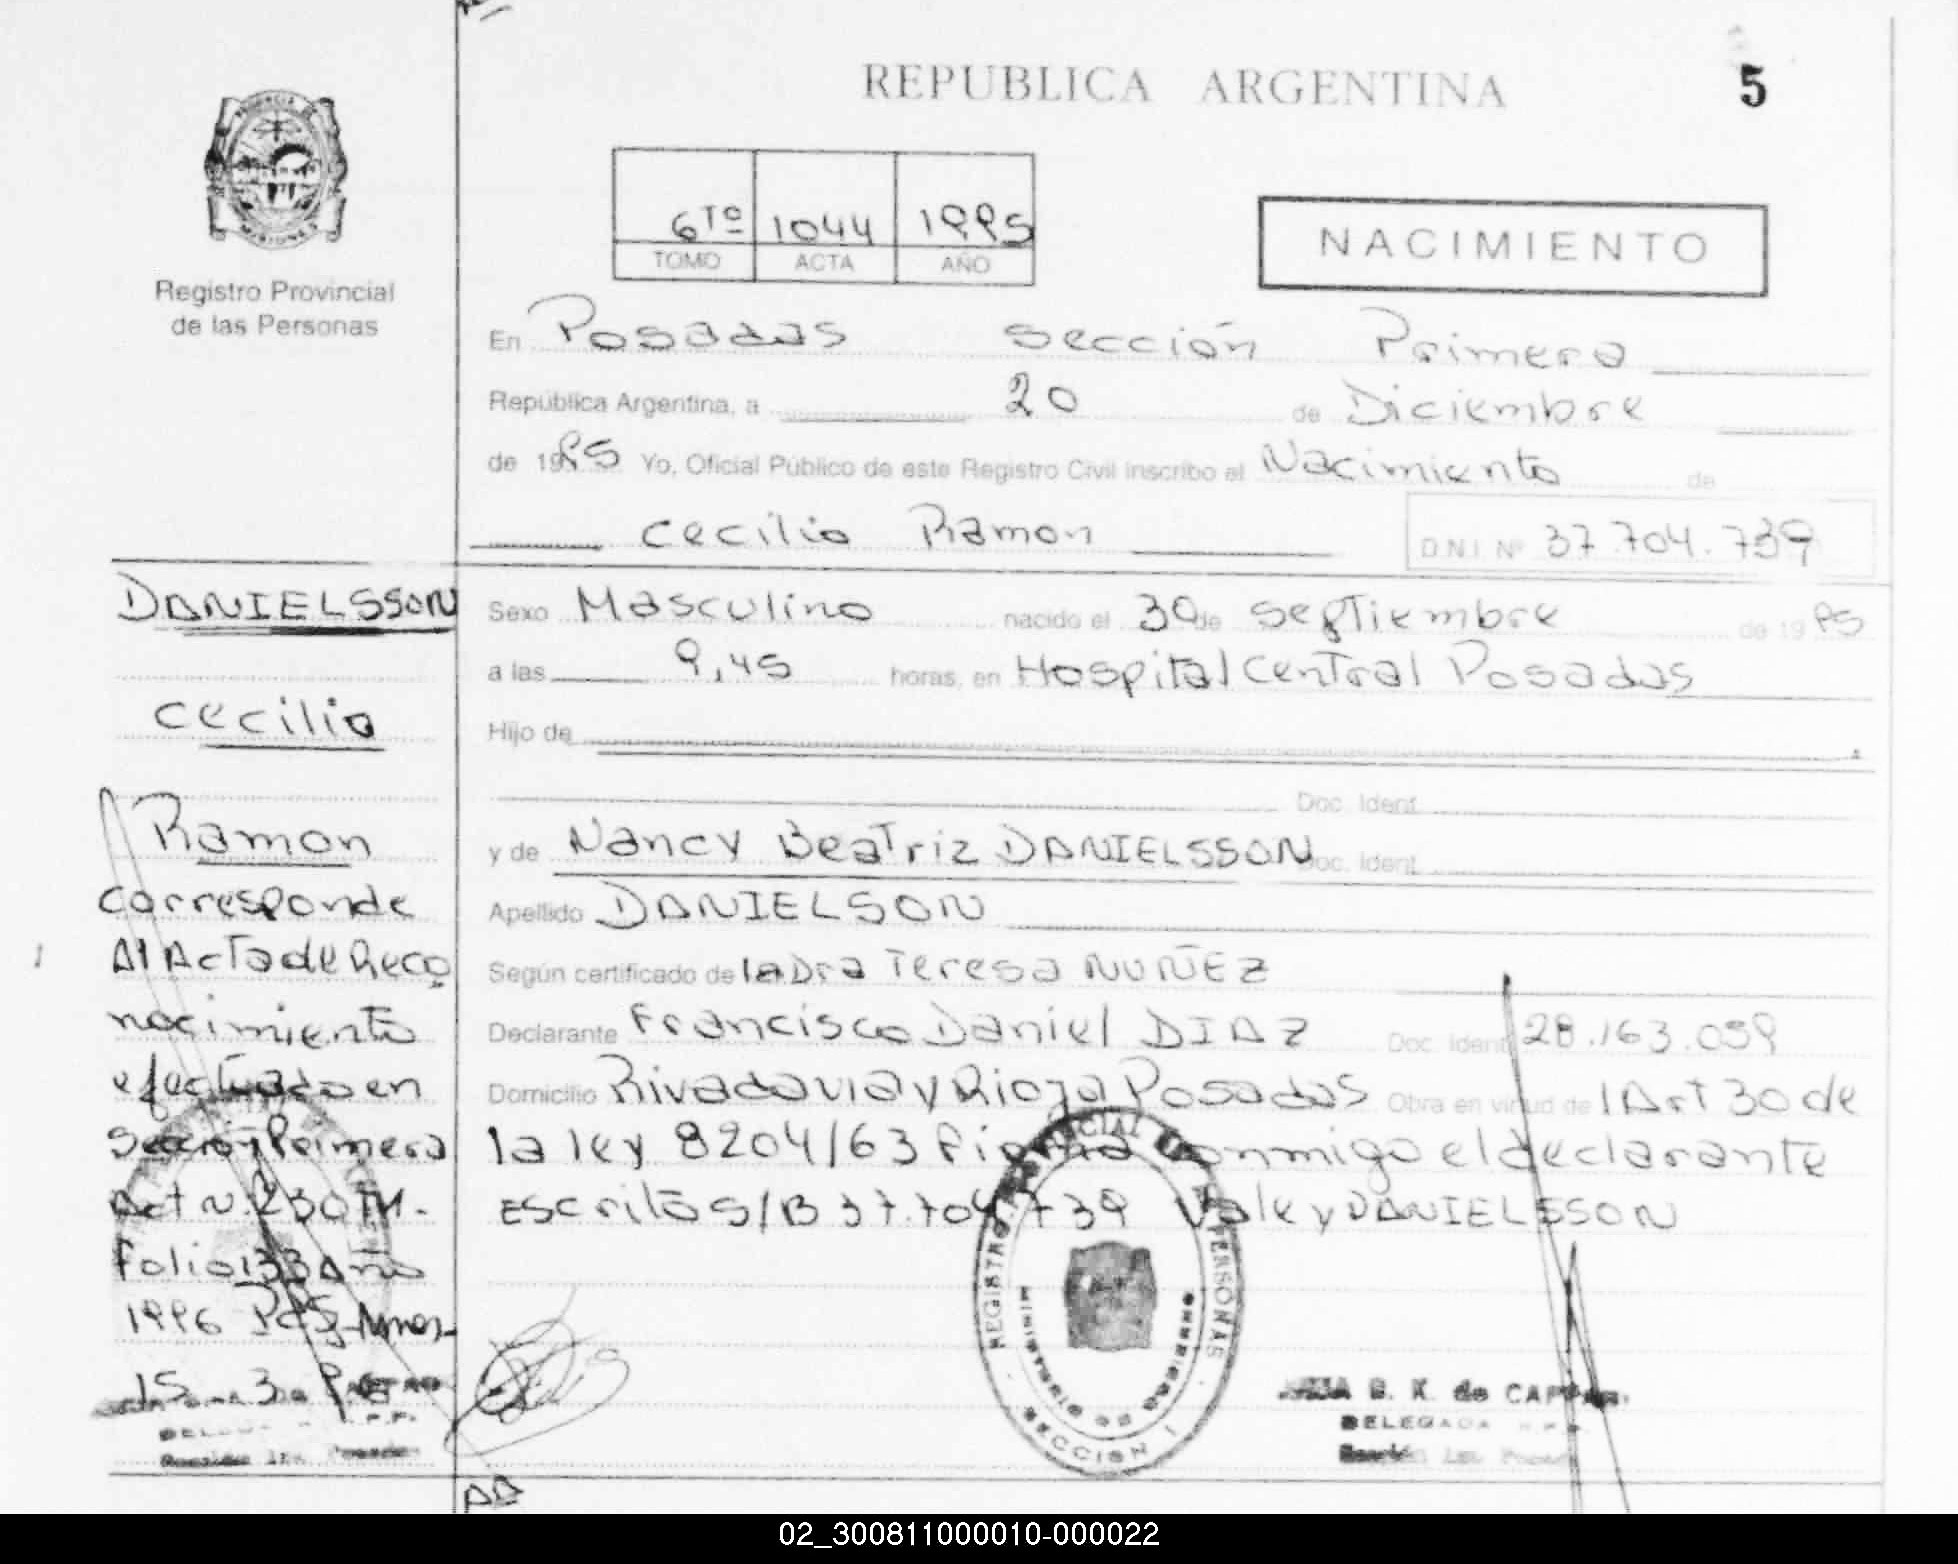 REPUBLICA ARGENTINA
5
PROVINCIA DE
MISIONES
Registro Provincial
de las Personas
6TO 1044 1995
TOMO ACTA AÑO
NACIMIENTO
En Posadas sección Primera
República Argentina, a 20 de Diciembre
de 1995 Yo, Oficial Público de este Registro Civil inscribo el Nacimiento de
Cecilio Ramon D.N.I. Nº 37.704.739
Sexo Masculino nacido el 30 de Septiembre de 1995
a las 9,45 horas, en Hospital Central Posadas
Hijo de
Doc. Ident.
y de Nancy Beatriz DANIELSSON Doc. Ident.
Apellido DANIELSON
Según certificado de la Dra Teresa NUÑEZ
Declarante Francisco Daniel DIAZ Doc. Ident. 28.163.059
Domicilio Rivadavia y Rioja Posadas Obra en virtud de l Art 30 de
la ley 8204/63 Firma conmigo el declarante
Escritos/B 37.704.739 Vale y DANIELSSON
DANIELSSON
Cecilio
Ramon
Corresponde
Al Acta de Reco
nocimiento
efectuado en
Sección Primera
Act N. 230 TM.
Folio 133 Año
1996 Pos,
15 3
REGISTRO PROVINCIAL PERSONAS
MINISTERIO DE GOBIERNO
SECCION 1
B. K. de
DELEGADA
02_300811000010-000022